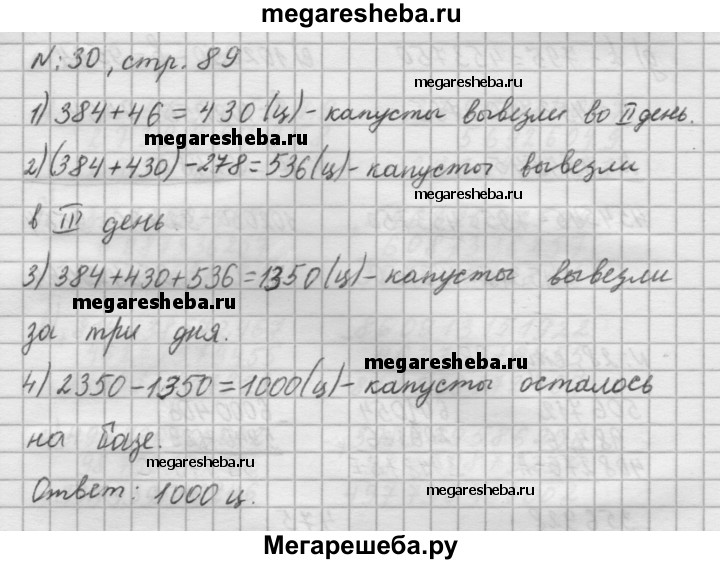 megaresheba.ru
№:30, стр. 89
megaresheba.ru
1) 384+46=430(ц)-капусты вывезли во II день.
megaresheba.ru
2)(384+430)-278=536(ц)-капусты вывезли
megaresheba.ru
в III день.
3) 384+430+536=1350(ц)-капусты вывезли
megaresheba.ru
за три дня.
megaresheba.ru
4) 2350-1350=1000(ц)-капусты осталось
на базе.
megaresheba.ru
Ответ: 1000 ц.
megaresheba.ru
Мегарешеба.ру